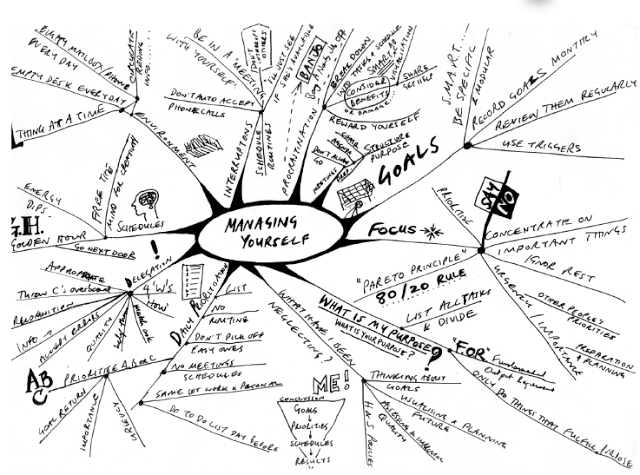 MANAGING
YOURSELF
EMPTY MAILBOX/PHONE
EVERY DAY
EMPTY DESK EVERYDAY
1 THING AT A TIME
ENVIRONMENT
BE IN A "MEETING
WITH YOURSELF"
DON'T AUTO ACCEPT
PHONECALLS
INTERRUPTIONS
SCHEDULE
ROUTINES
I'LL JUST SEE
IF SHE'S AVAILABLE
BANJO
PROCRASTINATION
BREAK DOWN
INTO TASKS & SCHEDULE
SHARE AS
VISUALISATION
CONSIDER
BENEFITS
OR DAMAGE
SHARE
GET HELP
REWARD YOURSELF
STRUCTURE
PURPOSE
MEETINGS
GOALS
S.M.A.R.T.
BE SPECIFIC
& MODULAR
RECORD GOALS MONTHLY
REVIEW THEM REGULARLY
USE TRIGGERS
FOCUS
PRIORITISE
SAY
NO
CONCENTRATE ON
IMPORTANT THINGS
IGNORE REST
OTHER PEOPLE'S
PRIORITIES
PREPARATION
& PLANNING
URGENCY / IMPORTANCE
"PARETO PRINCIPLE"
80/20 RULE
LIST ALL TASKS
& DIVIDE
WHAT IS MY PURPOSE?
WHAT IS YOUR PURPOSE?
"F.O.R"
Fundamental
Output Required
ONLY DO THINGS THAT FULFILL PURPOSE
WHAT HAVE I BEEN
NEGLECTING?
ME!
THINKING ABOUT
GOALS
VISUALISING & PLANNING
FUTURE
QUALITY
CONCLUSION
GOALS
PRIORITIES
SCHEDULES
RESULTS
DAILY
LIST
NO
ROUTING
DON'T PICK OFF
EASY ONES
NO MEETINGS
SCHEDULES
SAME LIST WORK & PERSONAL
DO TO DO LIST DAY BEFORE
PRIORITIES ABC
ABC
GOAL RETURN
IMPORTANCE
URGENCY
DELEGATION
!
4 'W'S
HOW
APPROPRIATE
THROW C'S OVERBOARD
RECOGNITION
INFO
QUALITY
SCHEDULES
FREE THE
MIND FOR CREATIVITY
ENERGY
DIPS
G.H.
GOLDEN HOUR
GO NEXT DOOR